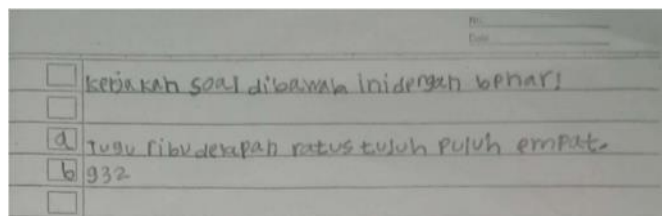 No.
Date
kerjakan soal dibawah inidengan benar!
a Tuju ribu delapan ratus tujuh puluh empat.
b 932